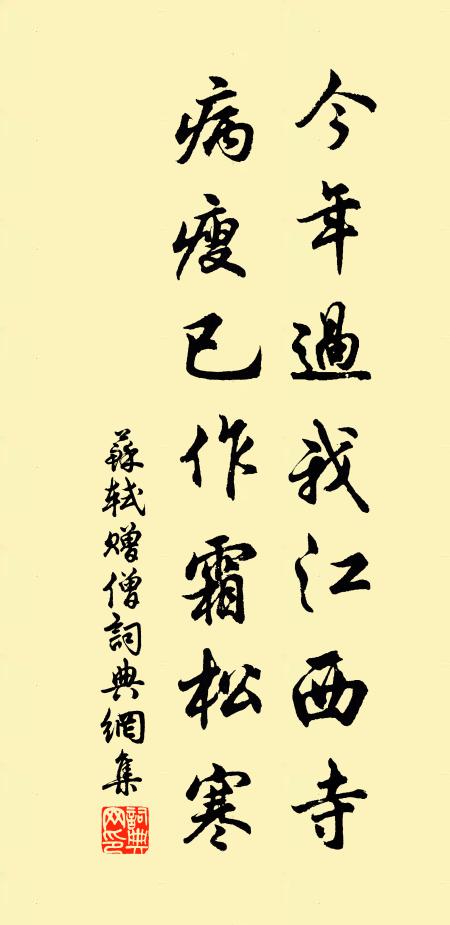 今年過我江西寺
病瘦已作霜松寒
蘇軾贈僧詞典網集
詞典網印